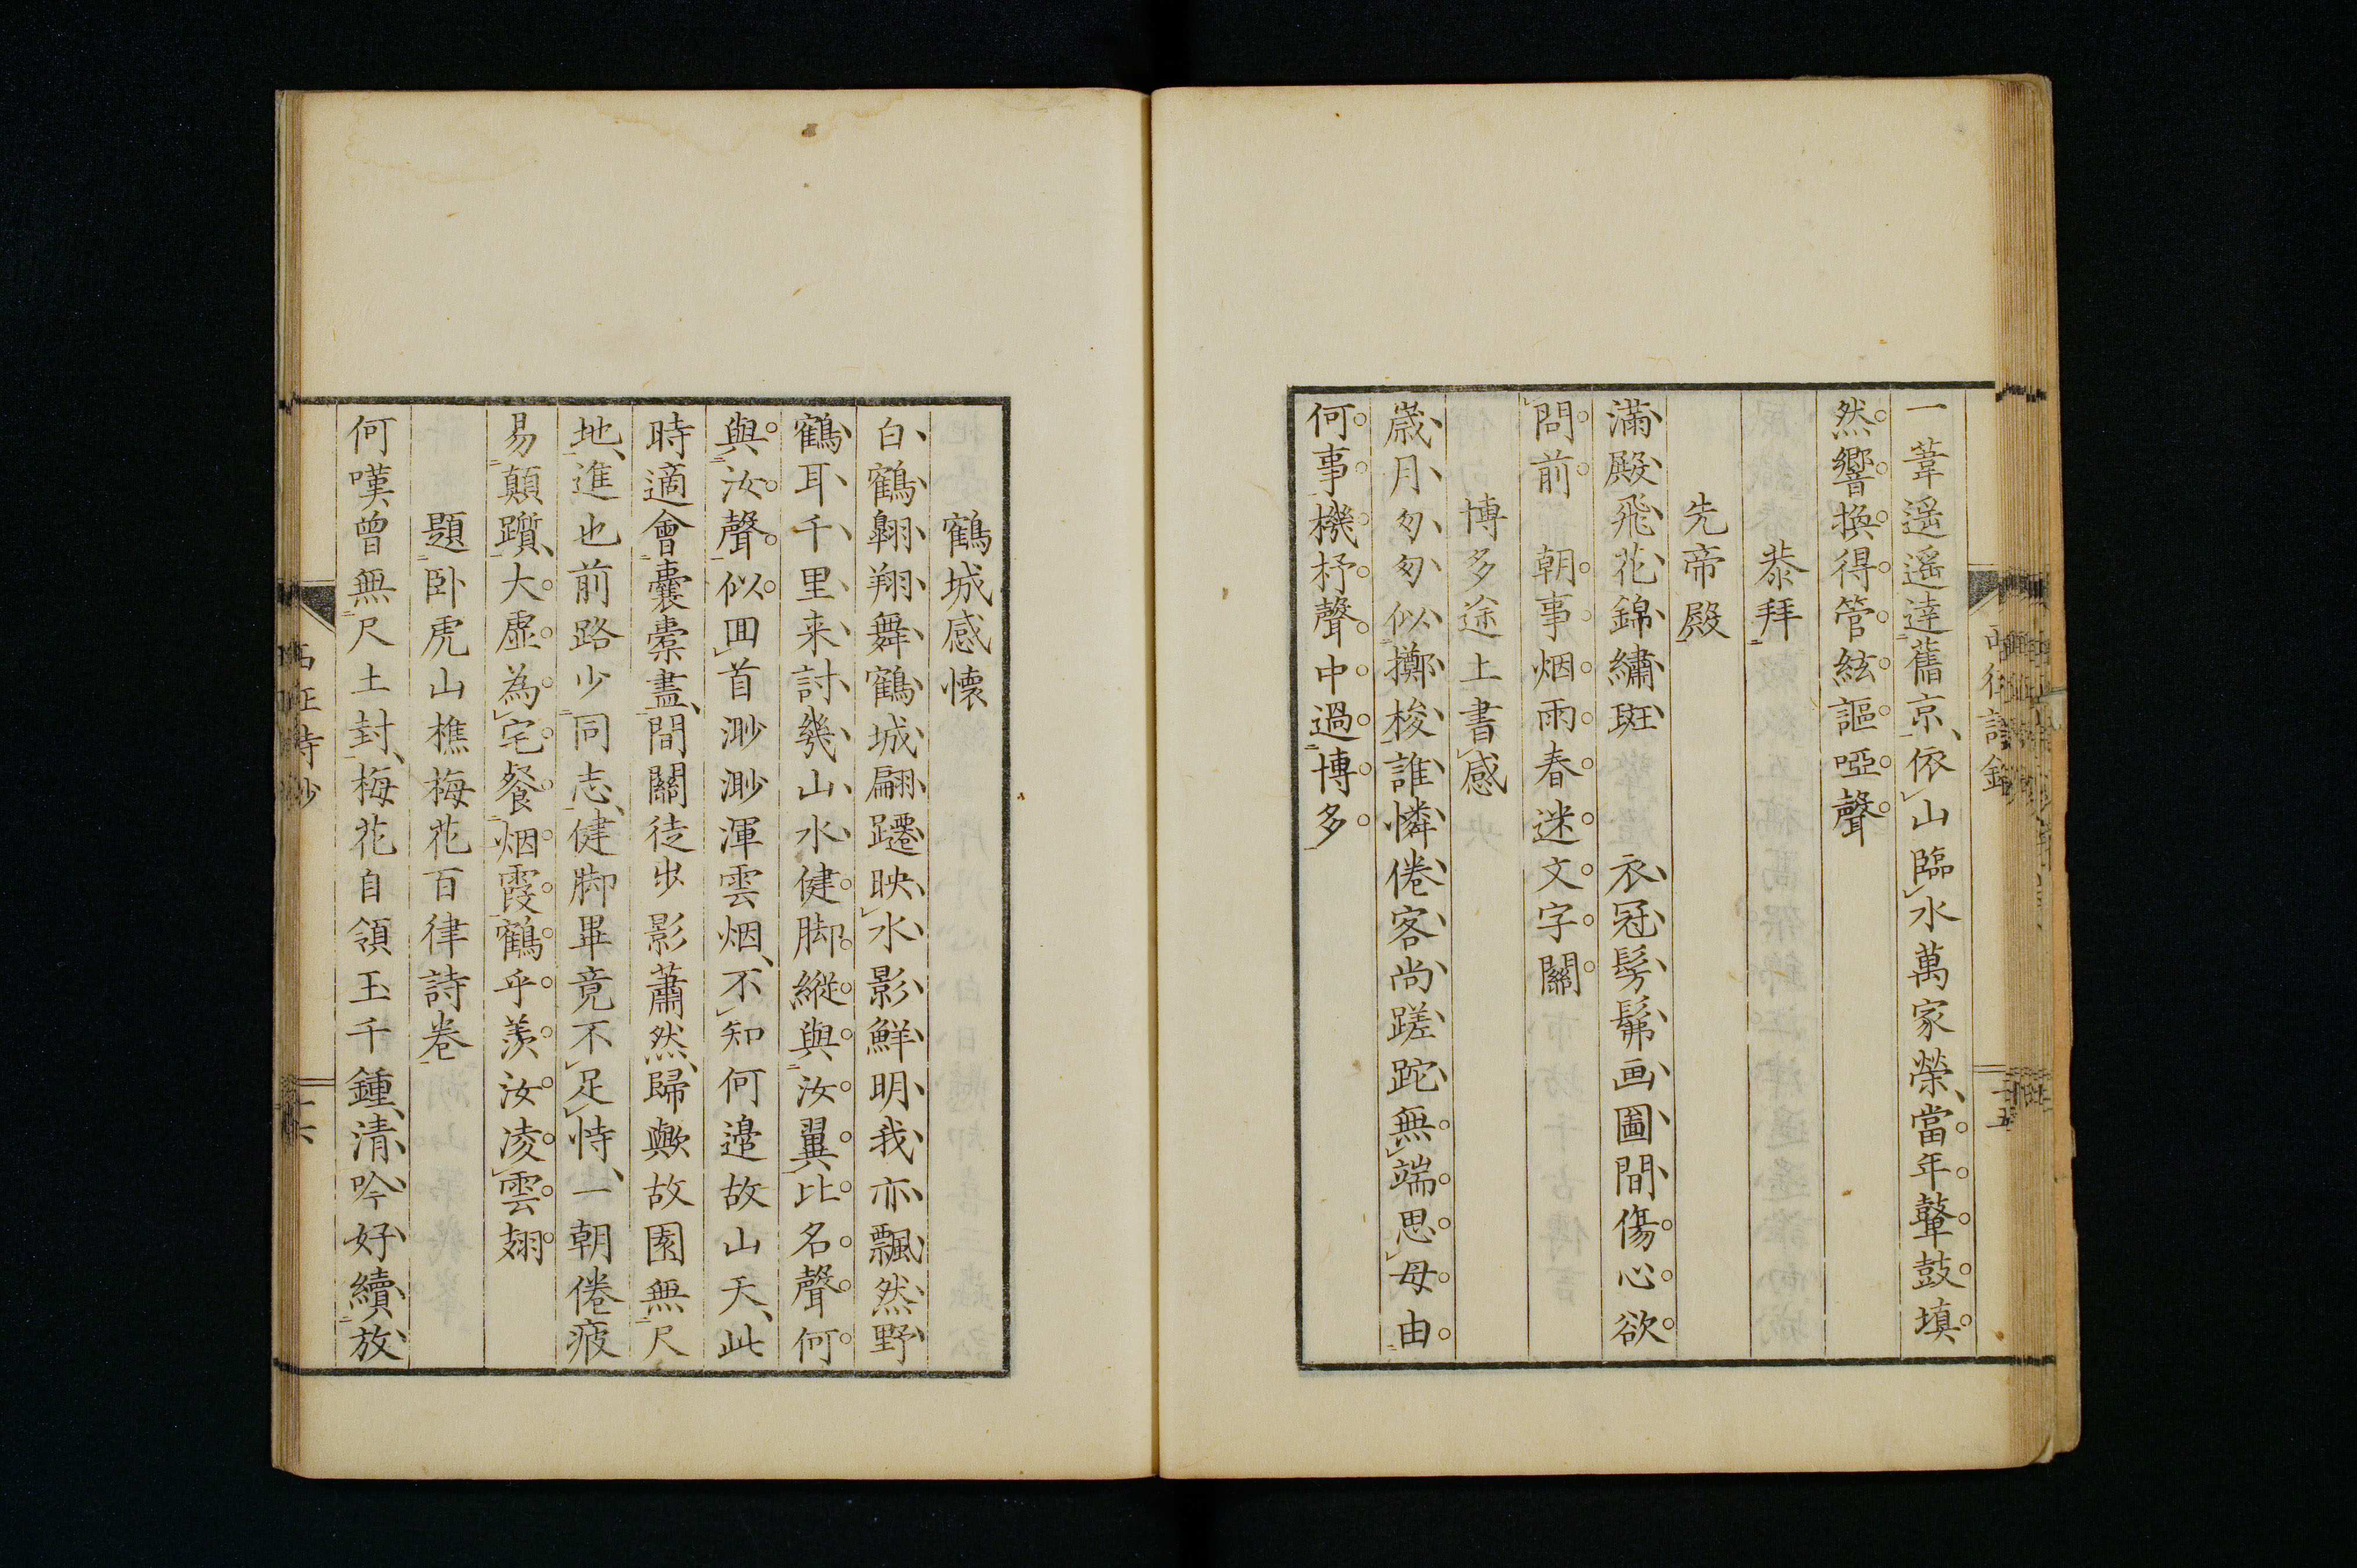 一葦遥遥達舊京依山臨水萬家榮當年鼙鼓塡
然響換得管絃謳啞聲
恭拜
先帝殿
滿殿飛花錦繡斑 衣冠髣髴画圖間傷心欲
問前 朝事烟雨春迷文字關
博多途上書感
歲月匆匆似擲梭誰憐倦客尚蹉跎無端思母由
何事機杼聲中過博多
鶴城感懷
白鶴翺翔舞鶴城翩躚映水影鮮明我亦飄然野
鶴耳千里来討幾山水健脚縱與汝翼比名聲何
與汝聲似囬首渺渺渾雲烟不知何邉故山天此
時適會囊槖盡間關徒歩影蕭然歸歟故園無尺
地進也前路少同志健脚畢竟不足恃一朝倦疲
易顛躓大虛為宅餐烟霞鶴乎羨汝凌雲翅
題卧虎山樵梅花百律詩卷
何嘆曾無尺土封梅花自領玉千鍾清吟好續放
西征詩鈔
十六
十五